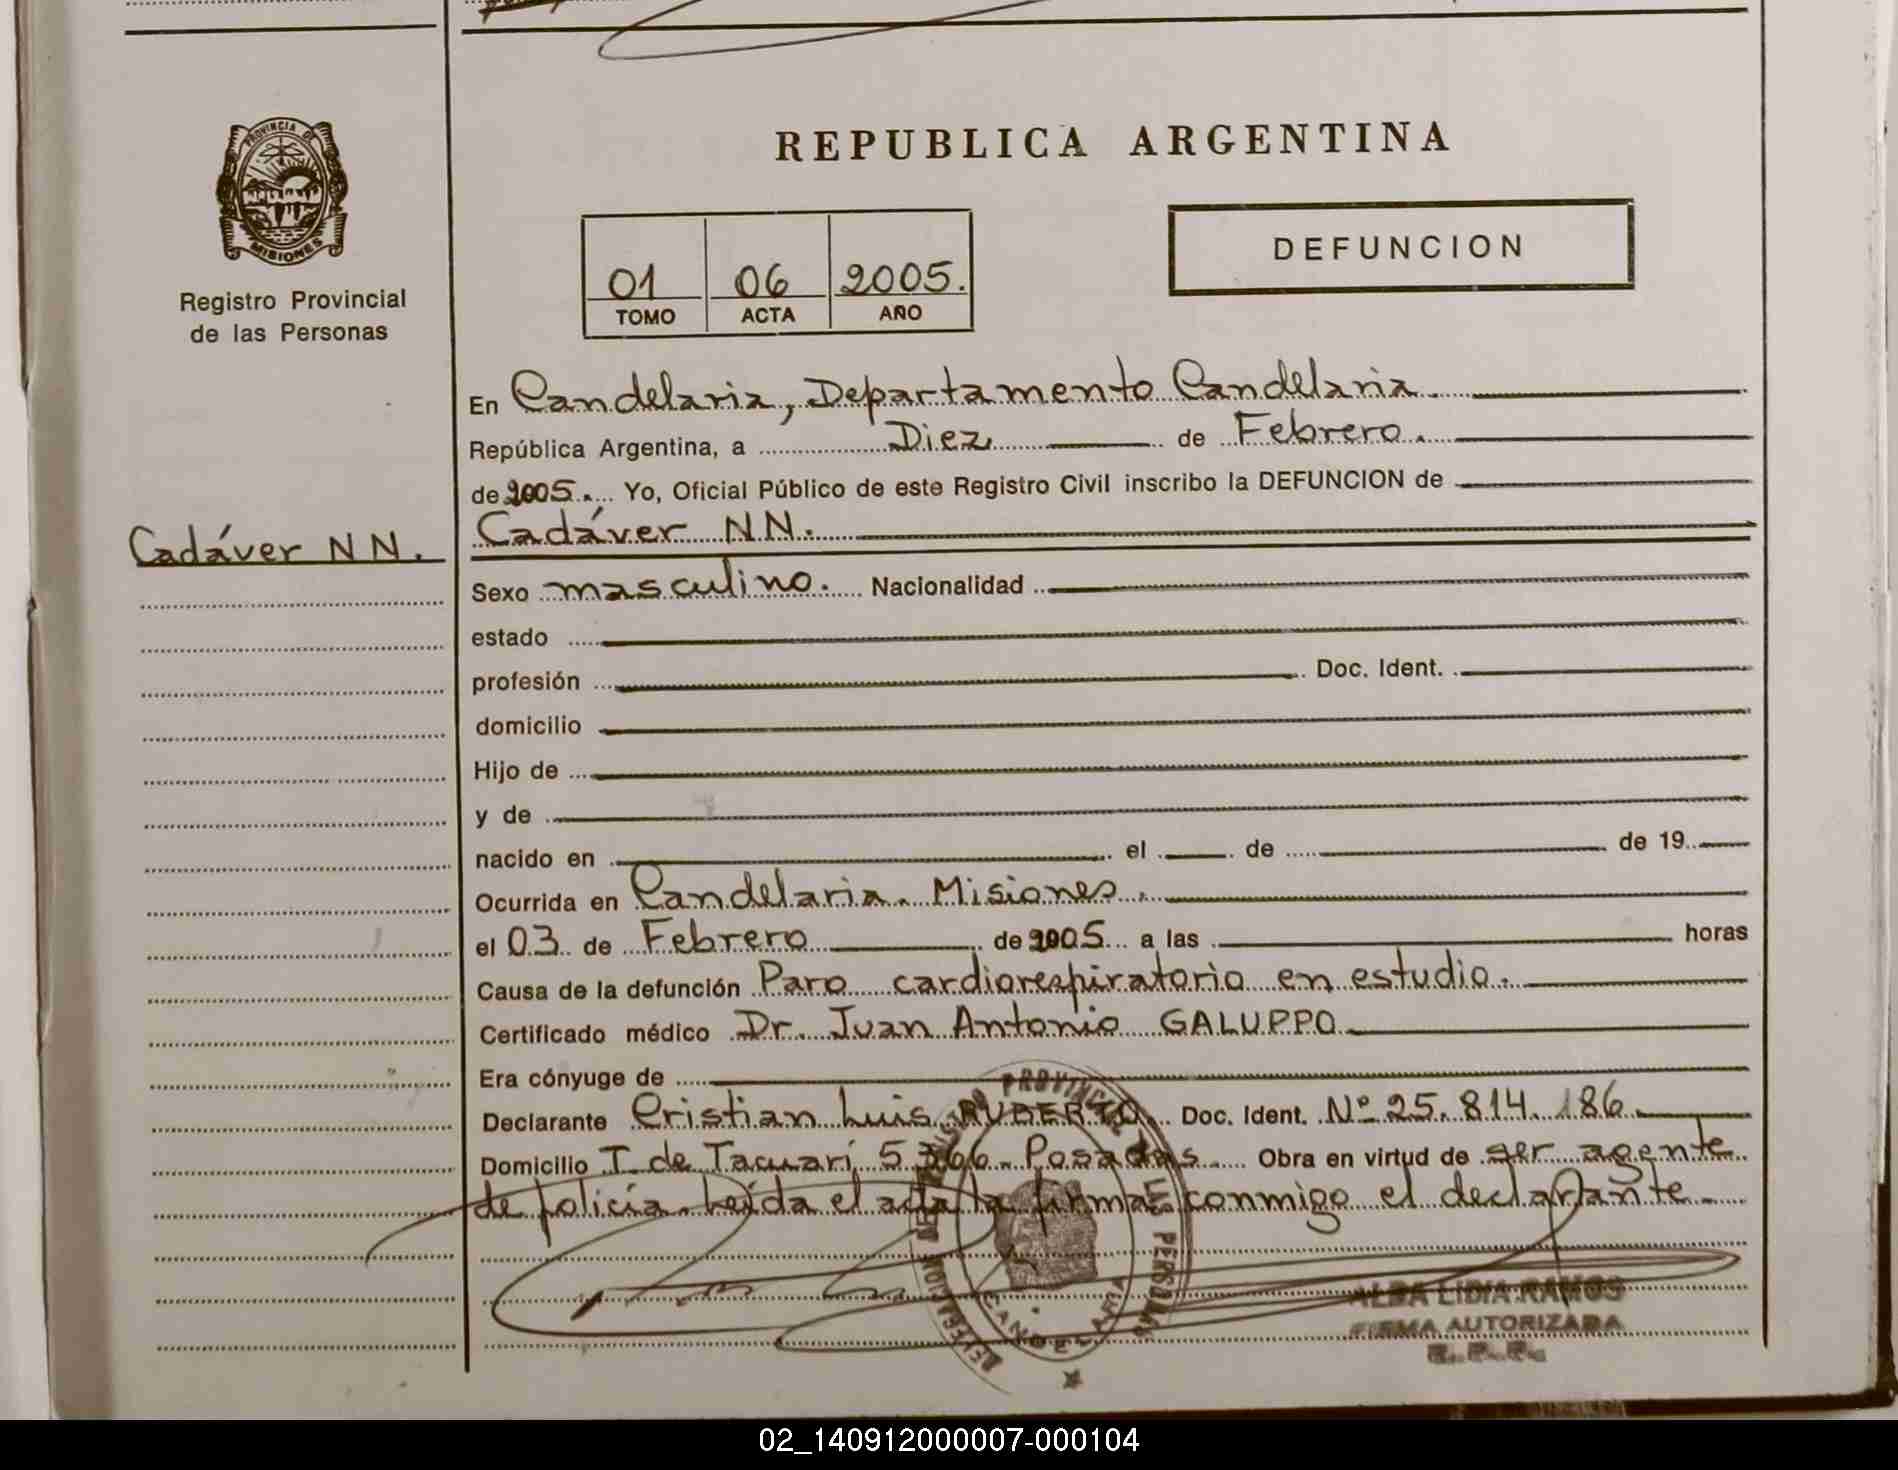 PROVINCIA DE
MISIONES
Registro Provincial
de las Personas
REPUBLICA ARGENTINA
01 06 2005.
TOMO ACTA AÑO
DEFUNCION
En Candelaria, Departamento Candelaria.
República Argentina, a Diez de Febrero.
de 2005. Yo, Oficial Público de este Registro Civil inscribo la DEFUNCION de
Cadáver NN.
Cadáver NN.
Sexo masculino. Nacionalidad
estado
profesión Doc. Ident.
domicilio
Hijo de
y de
nacido en el de de 19
Ocurrida en Candelaria. Misiones.
el 03 de Febrero de 2005 a las horas
Causa de la defunción Paro cardiorespiratorio en estudio.
Certificado médico Dr. Juan Antonio GALUPPO
Era cónyuge de
Declarante Cristian Luis RUBERTO Doc. Ident. Nº 25.814.186
Domicilio T. de Tacuarí 5366. Posadas. Obra en virtud de ser agente
de policía. Leída el acta la firma conmigo el declarante
PROVINCIAL DE LAS PERSONAS
CANDELARIA
ALBA LIDIA RAMOS
FIRMA AUTORIZADA
02_140912000007-000104